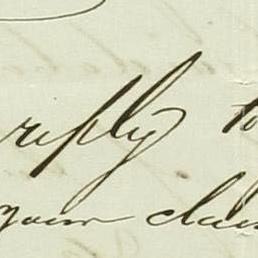 reply to
your